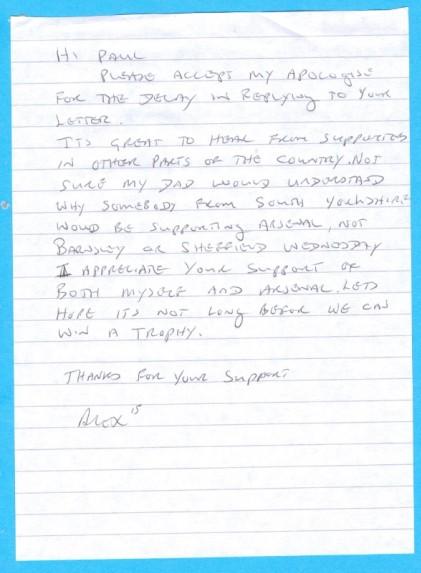 HI PAUL
PLEASE ACCEPT MY APOLOGISE
FOR THE DELAY IN REPLYING TO YOUR
LETTER.
ITS GREAT TO HEAR FROM SUPPORTERS
IN OTHER PARTS OF THE COUNTRY. NOT
SURE MY DAD WOULD UNDERSTAND
WHY SOMEBODY FROM SOUTH YORKSHIRE
WOULD BE SUPPORTING ARSENAL, NOT
BARNSLEY OR SHEFFIELD WEDNESDAY
I APPRECIATE YOUR SUPPORT OF
BOTH MYSELF AND ARSENAL. LETS
HOPE ITS NOT LONG BEFOR WE CAN
WIN A TROPHY.
THANKS FOR YOUR SUPPORT
Alex 15